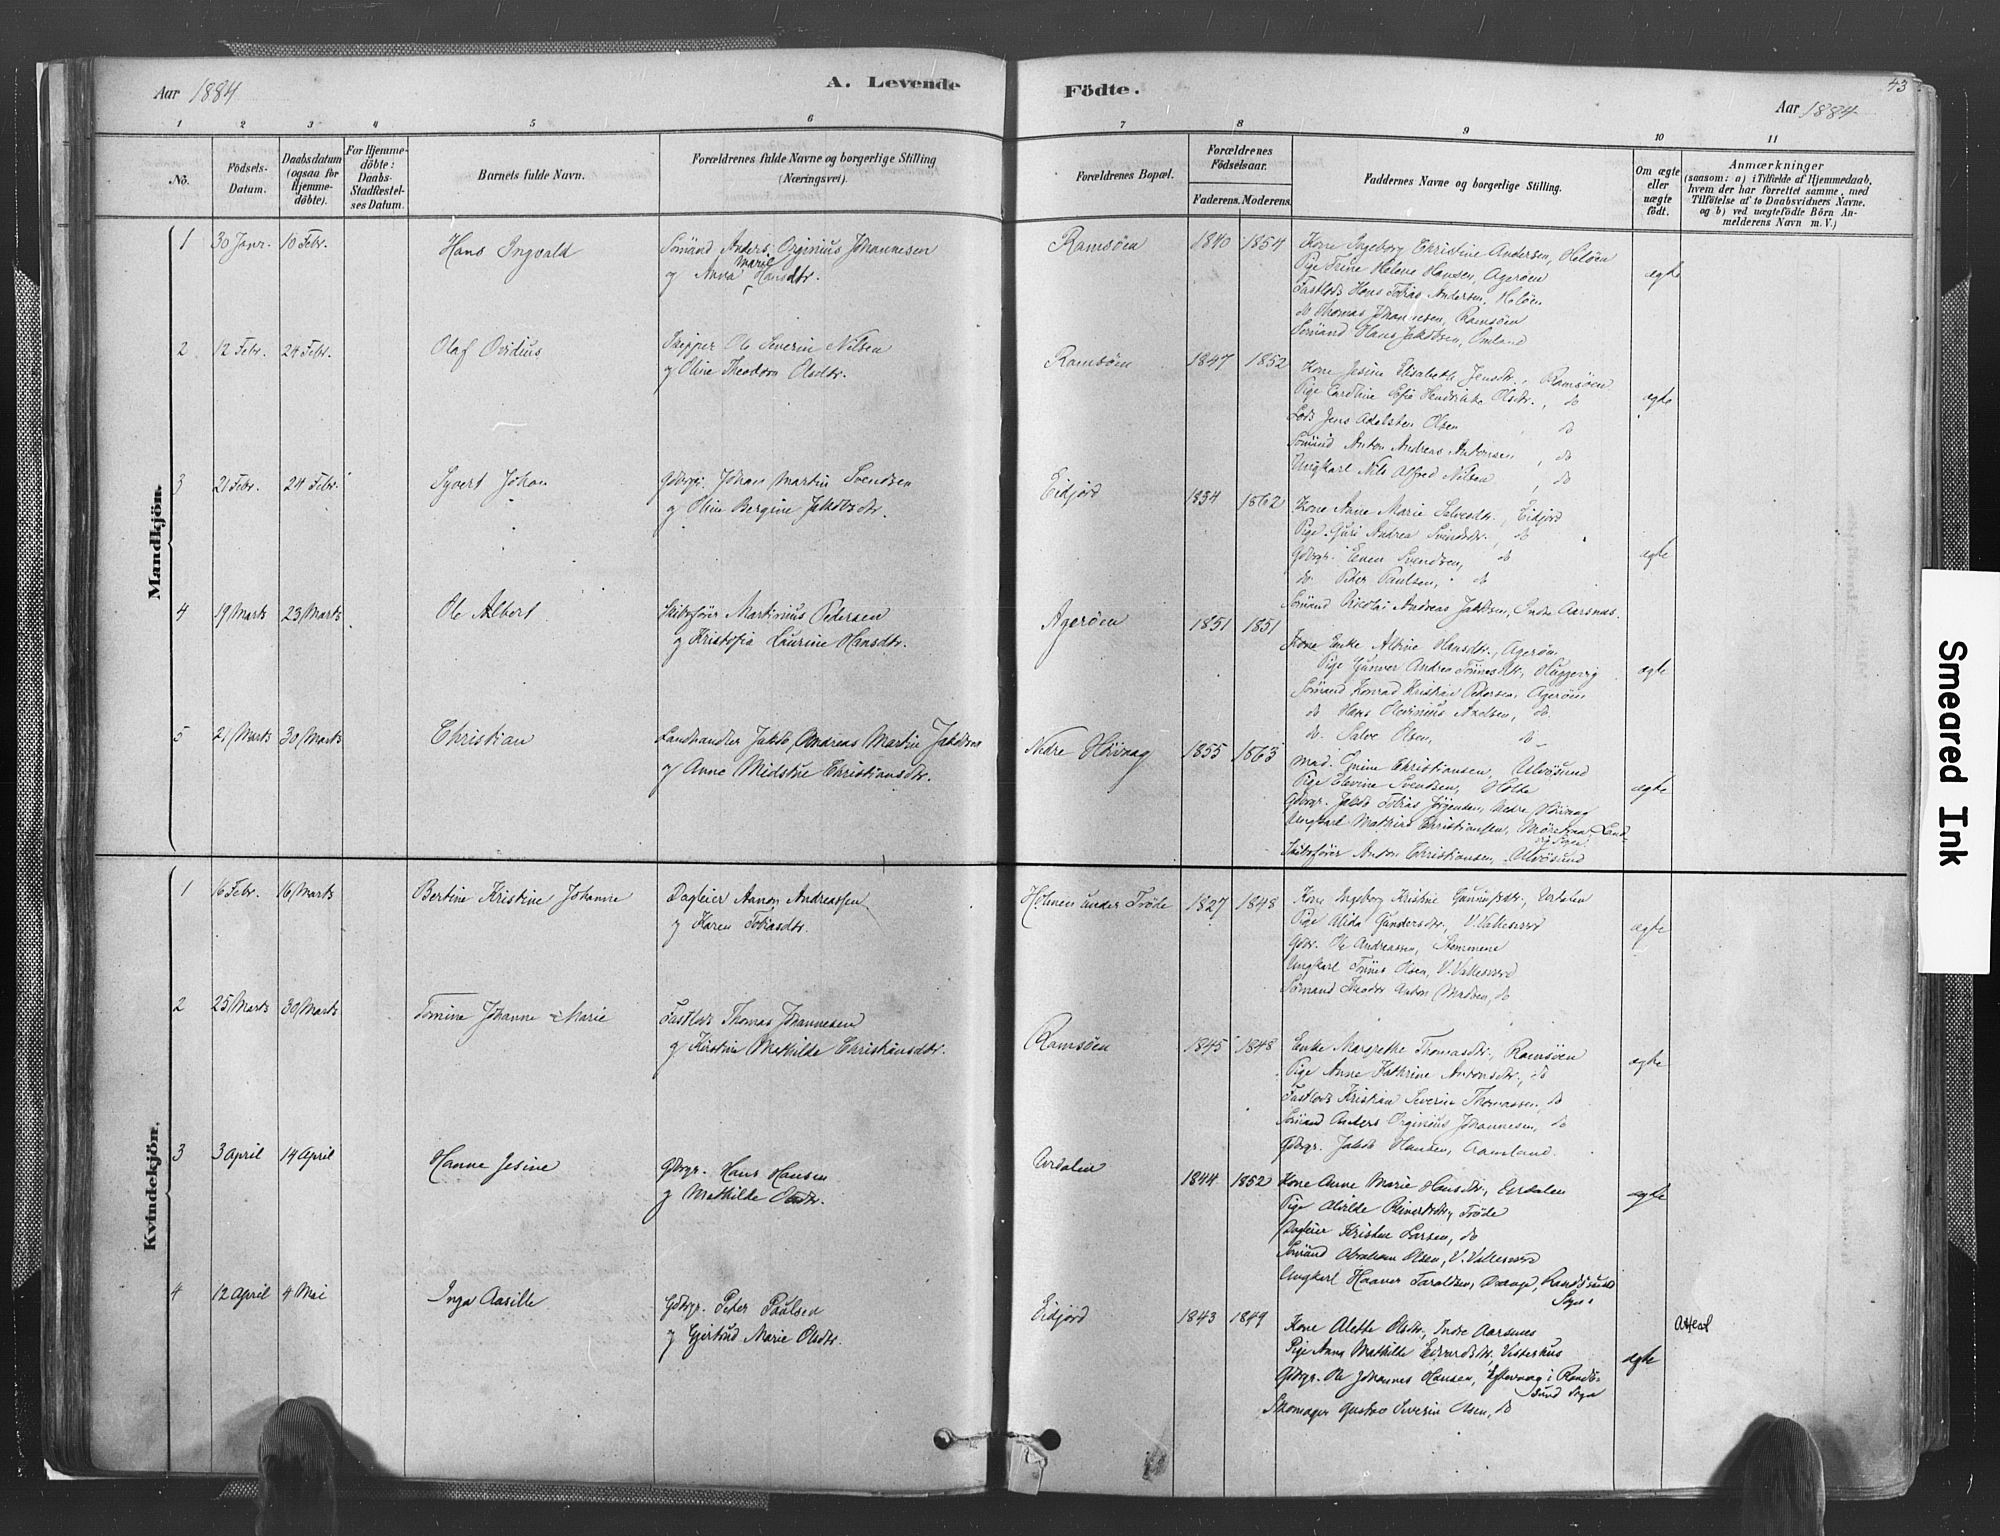 Aar 1884
A. Levende
Födte.
43
Aar 1884
1 2 3 4 5 6 7 8 9 10 11
No.
Födsels-
Datum.
Daabsdatum
(ogsaa for
Hjemme-
döbte).
For Hjemme-
döbte:
Daabs-
Stadfæstel-
ses Datum.
Barnets fulde Navn.
Forældrenes fulde Navne og borgerlige Stilling
(Næringsvei).
Forældrenes Bopæl.
Forældrenes
Födselsaar.
Faderens. Moderens.
Faddernes Navne og borgerlige Stilling.
Om ægte
eller
uægte
födt.
Anmærkninger
(saasom: a) i Tilfælde af Hjemmedaab,
hvem der har forrettet samme, med
Tilföielse af to Daabsvidners Navne,
og b) ved uægtefödte Börn An-
melderens Navn m. V.)
Mandkjön.
1 30 Janr. 10 Febr. Hans Ingvald
Sömand Anders Orginius Johannesen
og Anna Marie Hansdtr.
Ramsöen 1840 1854
Kone Ingeborg Christine Andersen, Helöen
Pige Trine Helene Hansen, Ageröen
Fastlods Hans Tobias Andersen, Helöen
do Thomas Johannesen, Ramsöen
Sömand Hans Jakobsen, Omland
ægte
2 12 Febr. 24 Febr. Olaf Ovidius
Skipper Ole Severin Nilsen
og Oline Theodora Olsdtr.
Ramsöen 1847 1852
Kone Jesine Elisabeth Jensdtr., Ramsöen
Pige Caroline Sofie Hendrikke Olsdtr., do
Lods Jens Adolsten Olsen do
Sömand Anton Andreas Antonsen, do
Ungkarl Nils Alfred Nilsen, do
ægte
3 21 Febr. 24 Febr. Syvert Johan
Gdbrgr. Johan Martin Svendsen
og Oline Bergine Jakobsdtr.
Eidjord 1834 1862
Kone Anne Marie Salvesdtr., Eidjord
Pige Guri Andrea Svendsdtr., do
Gdbrgr. Even Svendsen, do
do Peder Paulsen, do
Sömand Nicolai Andreas Jakobsen, Indre Aarsnes.
ægte
4 19 Marts 23 Marts Ole Albert
Skibsförer Martinius Pedersen
og Kristofia Laurine Hansdtr.
Ageröen 1851 1851
Kone Enke Albine Hansdtr., Ageröen
Pige Gunver Andrea Tönnesdtr.,
Sömand Konrad Kristian Pedersen, Ageröen
do Hans Axelsen, do
do Salve Olsen, do
ægte
5 21 Marts 30 Marts Christian
Landhandler Jakob Andreas Martin Jakobsen
og Anne Midstue Christiansdtr.
Nedre Hövaag 1855 1863
Mad. Christiansen, Ulvösund
Pige Elevine Svendsen, Holte
Gdbrgr. Jakob Tobias Jörgensen, Nedre Hövaag
Ungkarl Mathias Christiansen,
Skibsförer Anton Christiansen, Ulvösund
ægte
Kvindekjön.
1 16 Febr. 16 Marts Bertine Kristine Johanne
Dagleier Aanon Andreassen
og Karen Tobiasdtr.
Holmen under Tröde 1827 1848
Kone Ingeborg Kristine
Pige Alida Gundersdtr., V. Vallesverd
Gdbr. Ole Andreassen, Stemmene
Ungkarl Tönnes Olsen, V. Vallesverd
Sömand Theodor Anton Madsen, do
ægte
2 25 Marts 30 Marts Tomine Johanne Marie
Fastlods Thomas Johannesen
og Kirstine Mathilde Christiansdtr.
Ramsöen 1845 1848
Enke Margrethe Thomasdtr., Ramsöen
Pige Anne Kathrine Antonsdtr., do
Fastlods Kristian Severin Thomassen, do
Sömand Anders Orginius Johannesen, do
Gdbrgr. Jakob Hansen, Aamland.
ægte
3 3 April 14 April Hanne Jesine
Gdbrgr. Hans Hansen
og Mathilde Olsdtr.
1844 1852
Kone Anne Marie Hansdtr.,
Pige Alvilde Reiersdtr., Tröde
Dagleier Kristen Larsen, do
Sömand Abraham Olsen, V. Vallesverd
Ungkarl Haaver Taraldsen, Randösund
Sogn
ægte
4 12 April 4 Mai Inga Aasille
Gdbrgr. Peter Paulsen
og Gjertrud Marie Olsdtr.
Eidjord 1843 1849
Kone Alette Olsdtr., Indre Aarsnes
Pige Anna Mathilde Edvardsdtr., Vesterhus
Gdbrgr. Ole Johannes Hansen, Eftevaag i Randö-
sund Sogn
Skomager Gustav Severin Olsen, do
ægte
Attest
Smeared Ink